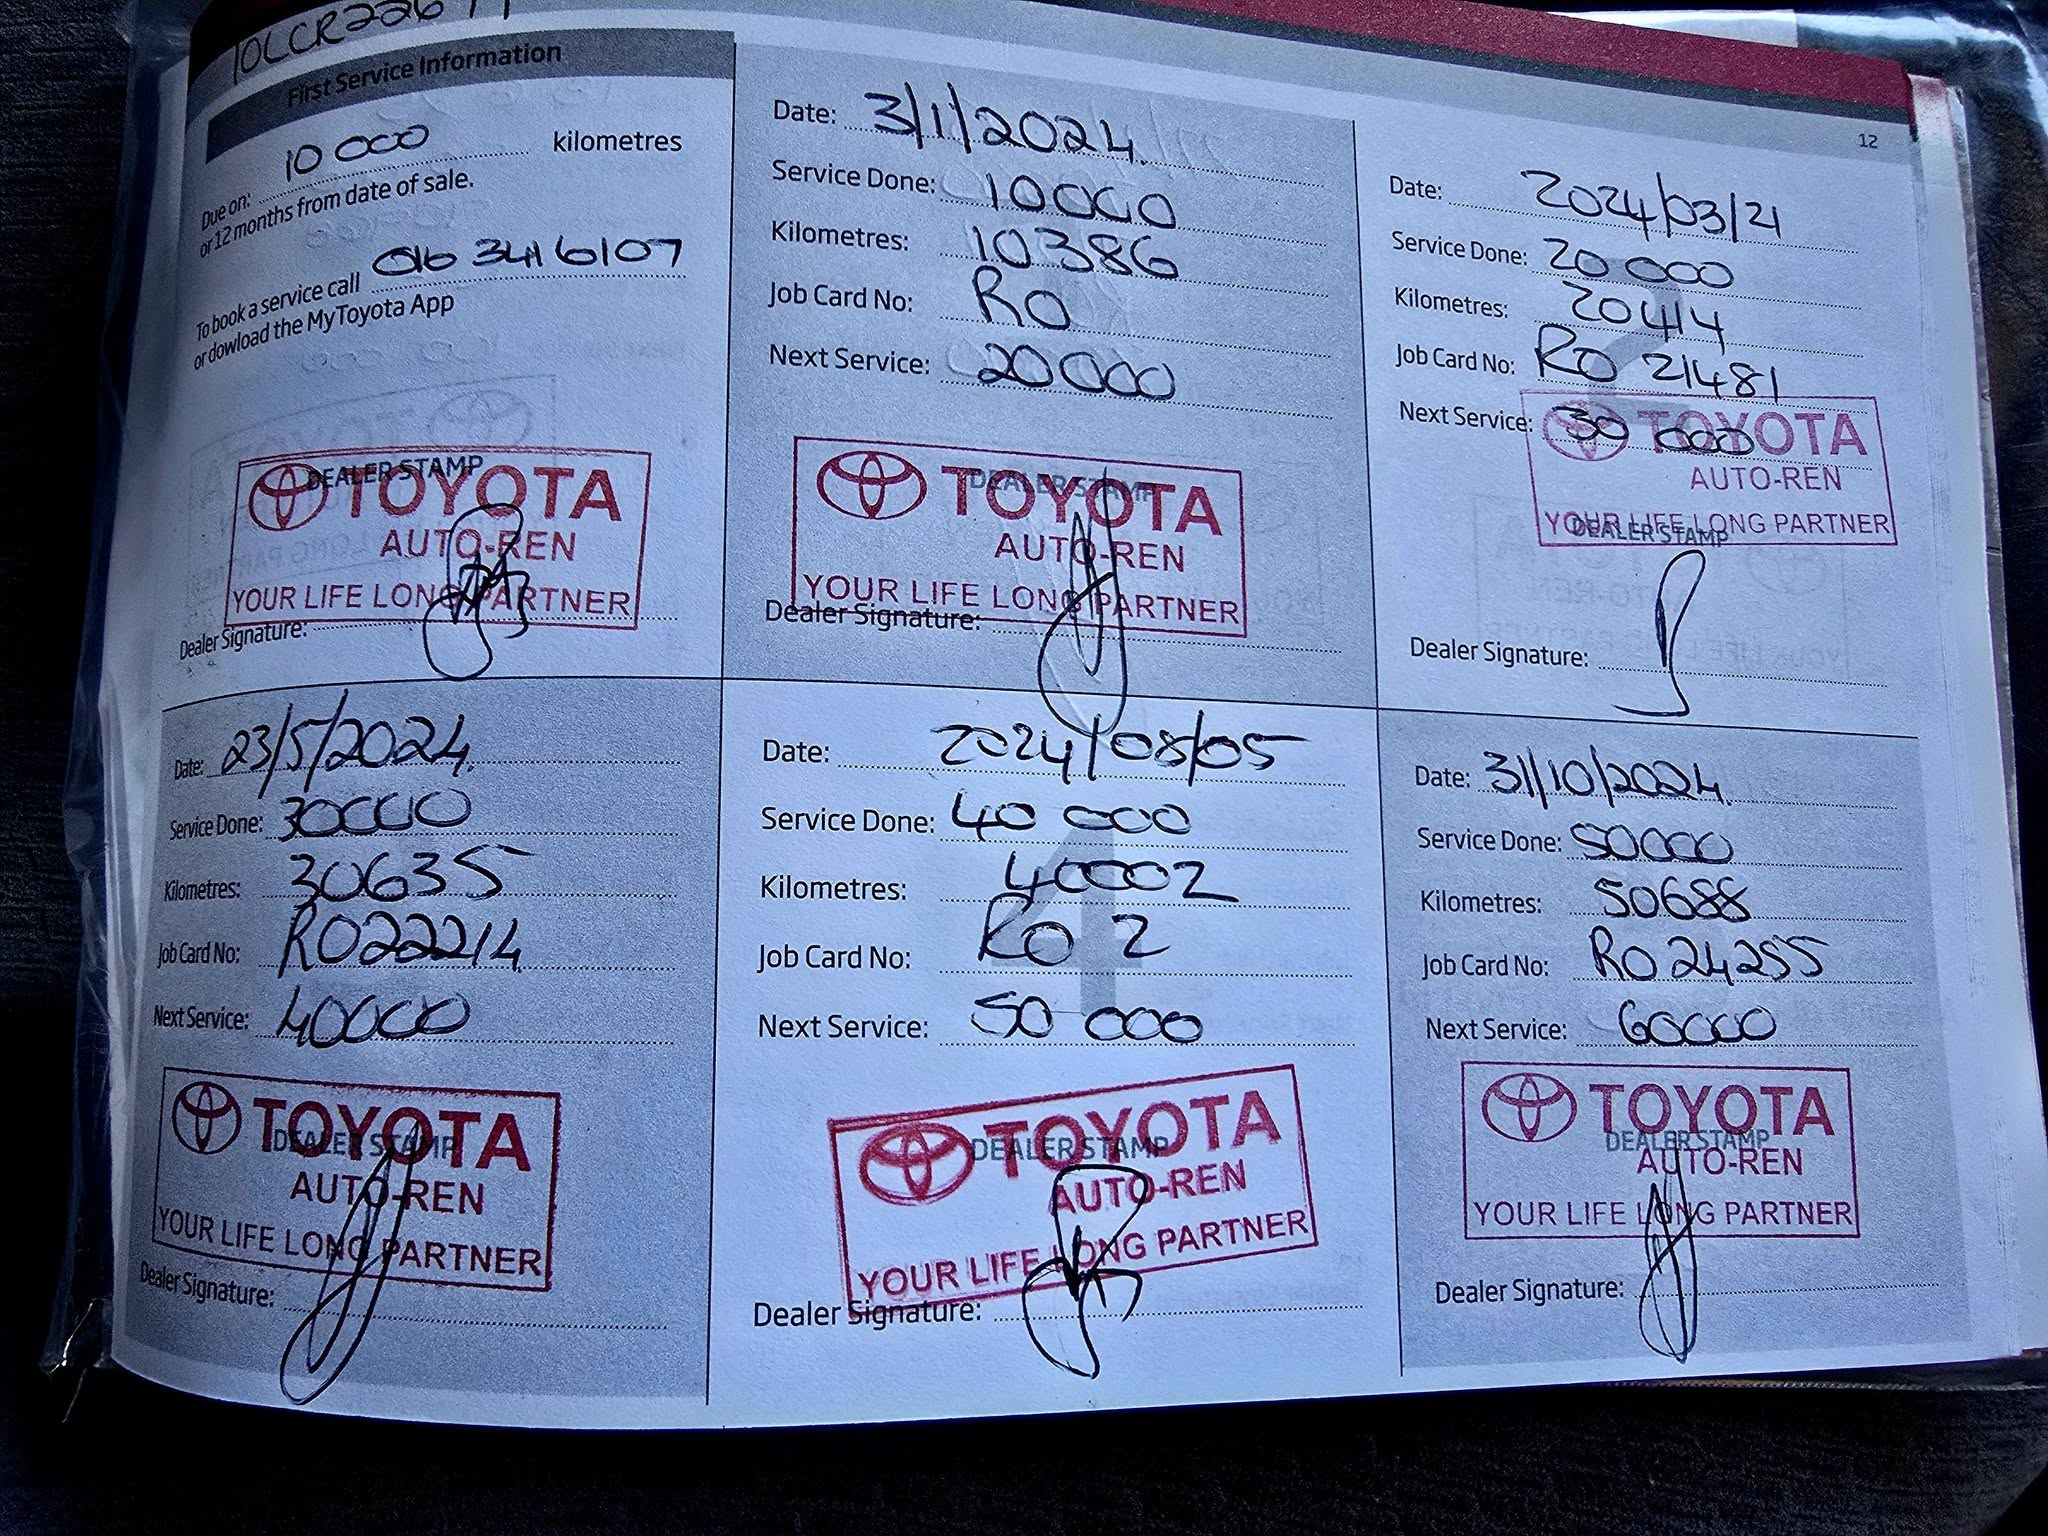 First Service Information
Due on: 10 000 kilometres
or 12 months from date of sale.
To book a service call 016 341 6107
or dowload the MyToyota App
DEALER STAMP
TOYOTA
AUTO-REN
YOUR LIFE LONG PARTNER
Dealer Signature:
Date: 3/1/2024.
Service Done: 10000
Kilometres: 10386
Job Card No: RO
Next Service: 20000
DEALER STAMP
TOYOTA
AUTO-REN
YOUR LIFE LONG PARTNER
Dealer Signature:
12
Date: 2024/03/21
Service Done: 20 000
Kilometres: 20414
Job Card No: RO 21481
Next Service: 30 000
TOYOTA
AUTO-REN
YOUR LIFE LONG PARTNER
DEALER STAMP
Dealer Signature:
Date: 23/5/2024.
Service Done: 30000
Kilometres: 30635
Job Card No: RO22214
Next Service: 40000
DEALER STAMP
TOYOTA
AUTO-REN
YOUR LIFE LONG PARTNER
Dealer Signature:
4
Date: 2024/08/05
Service Done: 40 000
Kilometres: 40002
Job Card No: RO 2
Next Service: 50 000
DEALER STAMP
TOYOTA
AUTO-REN
YOUR LIFE LONG PARTNER
Dealer Signature:
Date: 31/10/2024.
Service Done: 50000
Kilometres: 50688
Job Card No: RO 24255
Next Service: 60000
TOYOTA
DEALER STAMP
AUTO-REN
YOUR LIFE LONG PARTNER
Dealer Signature: